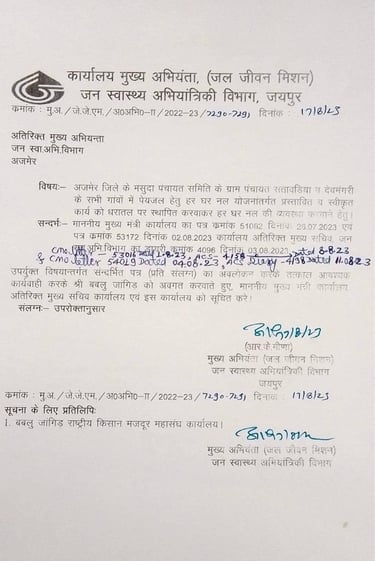 कार्यालय मुख्य अभियंता, (जल जीवन मिशन)
जन स्वास्थ्य अभियांत्रिकी विभाग, जयपुर
कमांक : मु.अ. / जे.जे.एम. / अ0अभि0-II / 2022-23 / 7290-7291 दिनांक : 17/8/23
अतिरिक्त मुख्य अभियन्ता
जन स्वा.अभि.विभाग
अजमेर
विषय:— अजमेर जिले के मसुदा पंचायत समिति के ग्राम पंचायत सतावडिया व देवमगरी
के सभी गांवों में पेयजल हेतु हर घर नल योजनांतर्गत प्रस्तावित व स्वीकृत
कार्य को धरातल पर स्थापित करवाकर हर घर नल की व्यवस्था करवाने हेतु।
सन्दर्भ:— माननीय मुख्य मंत्री कार्यालय का पत्र कमांक 51062 दिनांक 26.07.2023 एवं
पत्र कमांक 53172 दिनांक 02.08.2023 कार्यालय अतिरिक्त मुख्य सचिव, जन
स्वा.अभि.विभाग का डायरी कमांक 4096 दिनांक 03.08.2023
CMO letter - 53016 Dated 1-8-23, ACS - 4158 Dated 8-8-23
& CMO letter 54019 Dated 04.08.23, ACS Diary - 4198 Dated 11.08.23
उपर्युक्त विषयान्तर्गत संदर्भित पत्र (प्रति संलग्न) का अवलोकन करके तत्काल आवश्यक
कार्यवाही करके श्री बबलु जांगिड को अवगत करवाते हुए, माननीय मुख्य मंत्री कार्यालय
अतिरिक्त मुख्य सचिव कार्यालय एवं इस कार्यालय को सुचित करे।
संलग्न:— उपरोक्तानुसार
17/8/23
(आर.के.मीणा)
मुख्य अभियंता (जल जीवन मिशन)
जन स्वास्थ्य अभियांत्रिकी विभाग
जयपुर
कमांक : मु.अ. / जे.जे.एम. / अ0अभि0-II / 2022-23 / 7290-7291 दिनांक : 17/8/23
सूचना के लिए प्रतिलिपिः
1. बबलु जांगिड़ राष्ट्रीय किसान मजदूर महासंघ कार्यालय।
मुख्य अभियंता (जल जीवन मिशन)
जन स्वास्थ्य अभियांत्रिकी विभाग